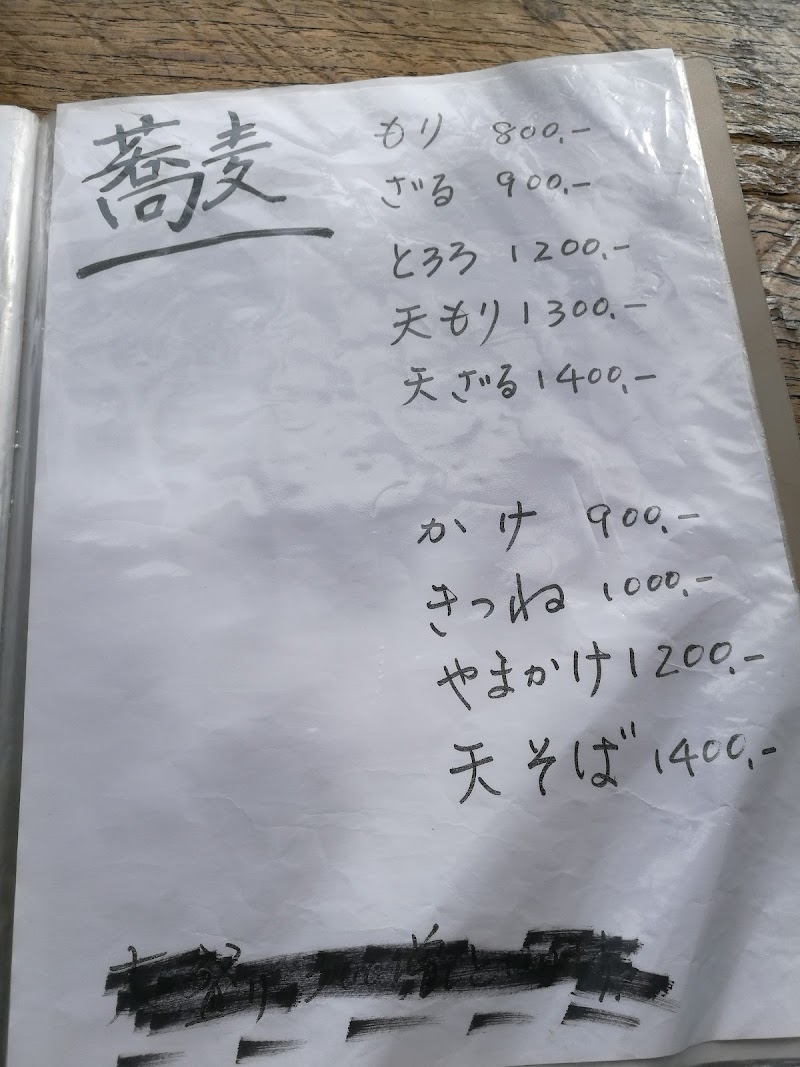 蕎麦
もり 800.-
ざる 900.-
とろろ 1200.-
天もり 1300.-
天ざる 1400.-
かけ 900.-
きつね 1000.-
やまかけ 1200.-
天そば 1400.-